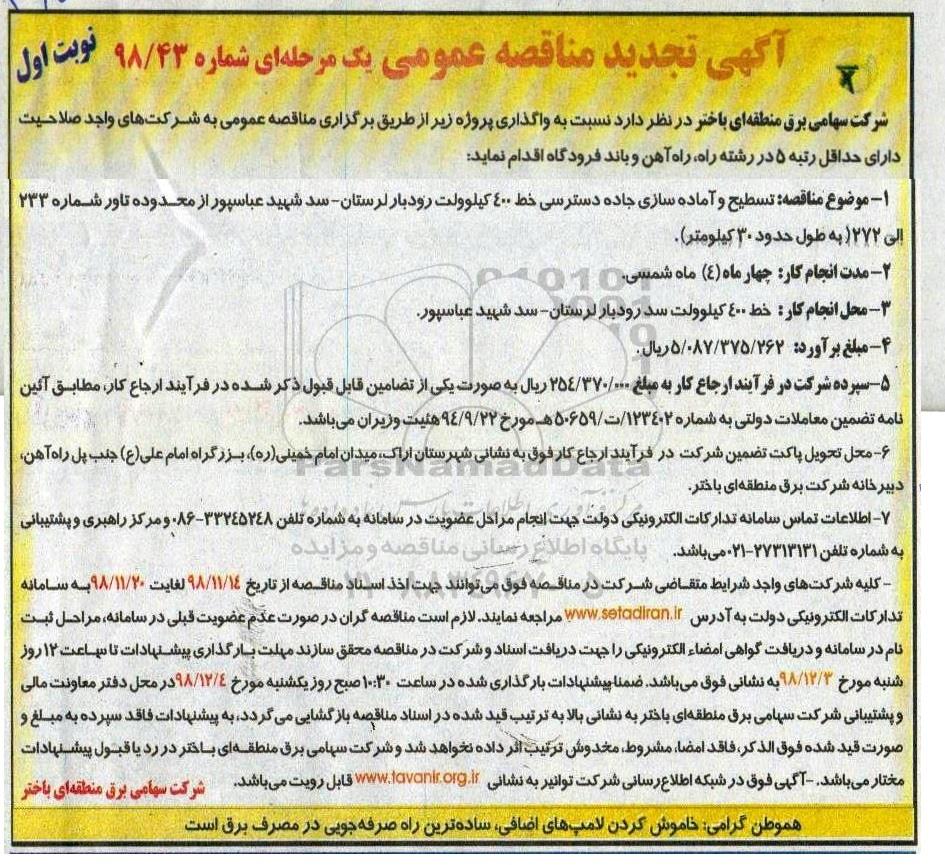 آگهی تجدید مناقصه عمومی یک مرحله‌ای شماره ۹۸/۴۳
نوبت اول
شرکت سهامی برق منطقه‌ای باختر در نظر دارد نسبت به واگذاری پروژه زیر از طریق برگزاری مناقصه عمومی به شرکت‌های واجد صلاحیت
دارای حداقل رتبه ۵ در رشته راه، راه‌آهن و باند فرودگاه اقدام نماید:
۱- موضوع مناقصه: تسطیح و آماده سازی جاده دسترسی خط ۴۰۰ کیلوولت رودبار لرستان- سد شهید عباسپور از محدوده تاور شماره ۲۳۳
الی ۲۷۲( به طول حدود ۳۰ کیلومتر).
۲- مدت انجام کار: چهار ماه (٤) ماه شمسی.
۳- محل انجام کار: خط ۴۰۰ کیلوولت سد رودبار لرستان- سد شهید عباسپور.
۴- مبلغ برآورد: ۵/۰۸۷/۳۷۵/۲۶۲ ریال.
۵- سپرده شرکت در فرآیند ارجاع کار به مبلغ ۲۵۴/۳۷۰/۰۰۰ ریال به صورت یکی از تضامین قابل قبول ذکر شده در فرآیند ارجاع کار، مطابق آئین
نامه تضمین معاملات دولتی به شماره ۱۲۳۴۰۲/ت/۵۰۶۵۹هـ مورخ ۹۴/۹/۲۲ هئیت وزیران می‌باشد.
۶- محل تحویل پاکت تضمین شرکت در فرآیند ارجاع کار فوق به نشانی شهرستان اراک، میدان امام خمینی(ره)، بزرگراه امام علی(ع) جنب پل راه‌آهن،
دبیرخانه شرکت برق منطقه‌ای باختر.
۷- اطلاعات تماس سامانه تدارکات الکترونیکی دولت جهت انجام مراحل عضویت در سامانه به شماره تلفن ۳۳۲۴۵۲۴۸-۰۸۶ و مرکز راهبری و پشتیبانی
به شماره تلفن ۲۷۳۱۳۱۳۱-۰۲۱ می‌باشد.
- کلیه شرکت‌های واجد شرایط متقاضی شرکت در مناقصه فوق می‌توانند جهت اخذ اسناد مناقصه از تاریخ ۹۸/۱۱/۱۴ لغایت ۹۸/۱۱/۲۰ به سامانه
تدارکات الکترونیکی دولت به آدرس www.setadiran.ir مراجعه نمایند. لازم است مناقصه گران در صورت عدم عضویت قبلی در سامانه، مراحل ثبت
نام در سامانه و دریافت گواهی امضاء الکترونیکی را جهت دریافت اسناد و شرکت در مناقصه محقق سازند مهلت بارگذاری پیشنهادات تا ساعت ۱۲ روز
شنبه مورخ ۹۸/۱۲/۳ به نشانی فوق می‌باشد. ضمنا پیشنهادات بارگذاری شده در ساعت ۱۰:۳۰ صبح روز یکشنبه مورخ ۹۸/۱۲/٤ در محل دفتر معاونت مالی
و پشتیبانی شرکت سهامی برق منطقه‌ای باختر به نشانی بالا به ترتیب قید شده در اسناد مناقصه بازگشایی می‌گردد، به پیشنهادات فاقد سپرده به مبلغ و
صورت قید شده فوق الذکر، فاقد امضا، مشروط، مخدوش ترتیب اثر داده نخواهد شد و شرکت سهامی برق منطقه‌ای باختر در رد یا قبول پیشنهادات
مختار می‌باشد. -آگهی فوق در شبکه اطلاع‌رسانی شرکت توانیر به نشانی www.tavanir.org.ir قابل رویت می‌باشد.
شرکت سهامی برق منطقه‌ای باختر
هموطن گرامی: خاموش کردن لامپ‌های اضافی، ساده‌ترین راه صرفه‌جویی در مصرف برق است
ParsNamadData
پایگاه اطلاع رسانی مناقصه و مزایده